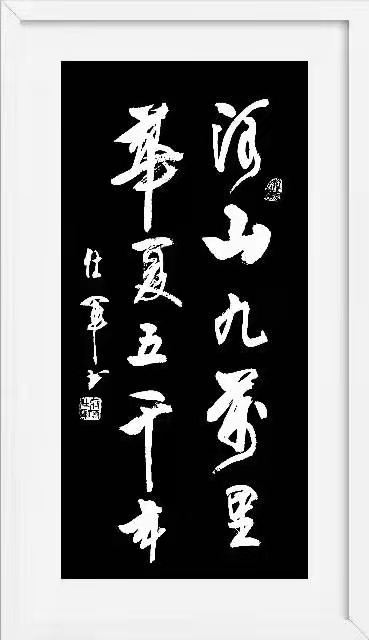 河山九萬里
華夏五千年
任軍书